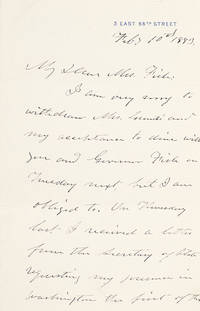 3 EAST 66TH STREET
Feby 10th 1883.
My Dear Mrs. Fish:
I am very sorry to
withdraw Mrs. Grant's and
my acceptance to dine with
you and Governor Fish on
Thursday next but I am
obliged to. On Thursday
last I received a letter
from the Secretary of State
requesting my presence in
Washington the first of the